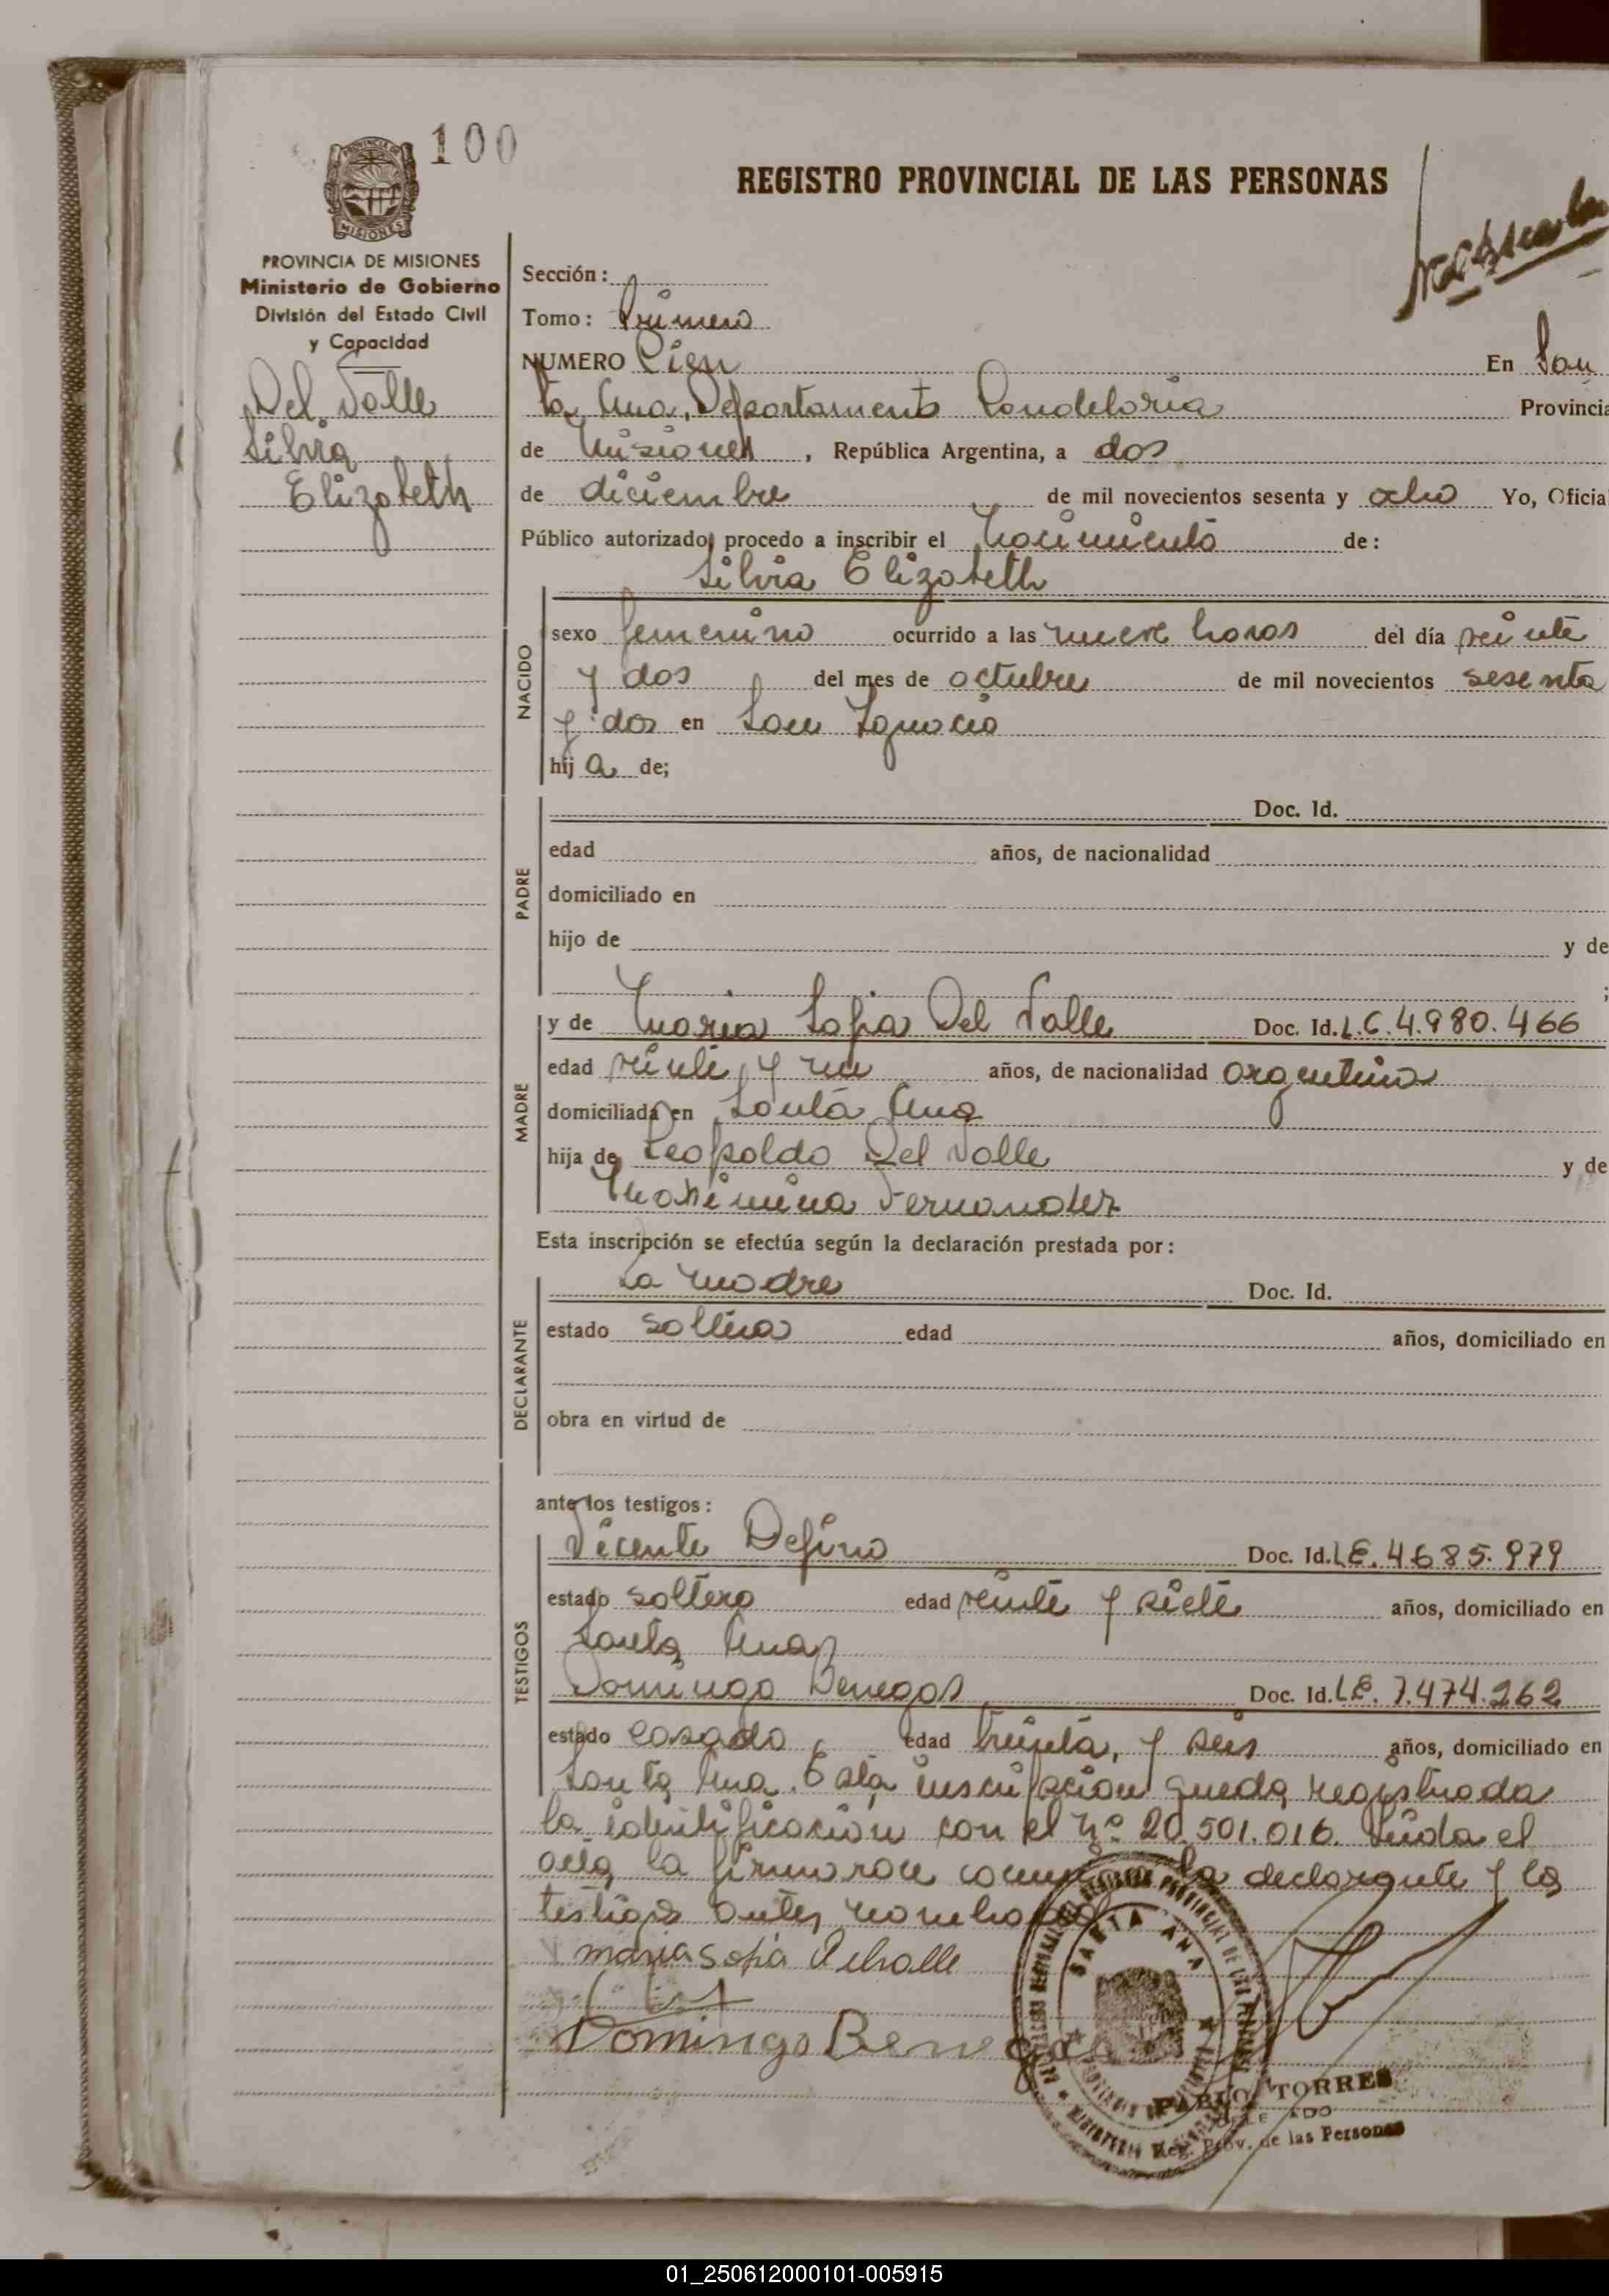 100
REGISTRO PROVINCIAL DE LAS PERSONAS
PROVINCIA DE
MISIONES
PROVINCIA DE MISIONES
Ministerio de Gobierno
División del Estado Civil
y Capacidad
Del Valle
Silvia
Elizabeth
Sección:
Tomo: Primero
NUMERO Cien En San
ta Ana, Departamento Candelaria Provincia
de Misiones, República Argentina, a dos
de diciembre de mil novecientos sesenta y ocho Yo, Oficial
Público autorizado, procedo a inscribir el Nacimiento de:
Silvia Elizabeth
NACIDO
sexo femenino ocurrido a las nueve horas del día veinte
y dos del mes de octubre de mil novecientos sesenta
y dos en San Ignacio
hij a de;
PADRE
Doc. Id.
edad años, de nacionalidad
domiciliado en
hijo de y de
;
MADRE
y de Maria Sofia Del Valle Doc. Id. L.C. 4.980.466
edad veinte y un años, de nacionalidad argentina
domiciliada en Santa Ana
hija de Leopoldo Del Valle y de
Maximina Fernandez
Esta inscripción se efectúa según la declaración prestada por:
DECLARANTE
La madre Doc. Id.
estado soltera edad años, domiciliado en
obra en virtud de
ante los testigos:
TESTIGOS
Vicente Defino Doc. Id. L.E. 4685.979
estado soltero edad veinte y siete años, domiciliado en
Santa Ana y
Domingo Benegas Doc. Id. L.E. 7.474.262
estado casado, edad treinta, y seis años, domiciliado en
Santa Ana. Esta inscripción queda registrada
la identificación con el nº 20.501.016. Leida el
acta la firmaron conmigo la declarante y los
testigos antes nombrados
maria Sofia Delvalle
Domingo Benegas
SANTA ANA
PABLO TORRES
DELEGADO
Reg. Prov. de las Personas
01_250612000101-005915